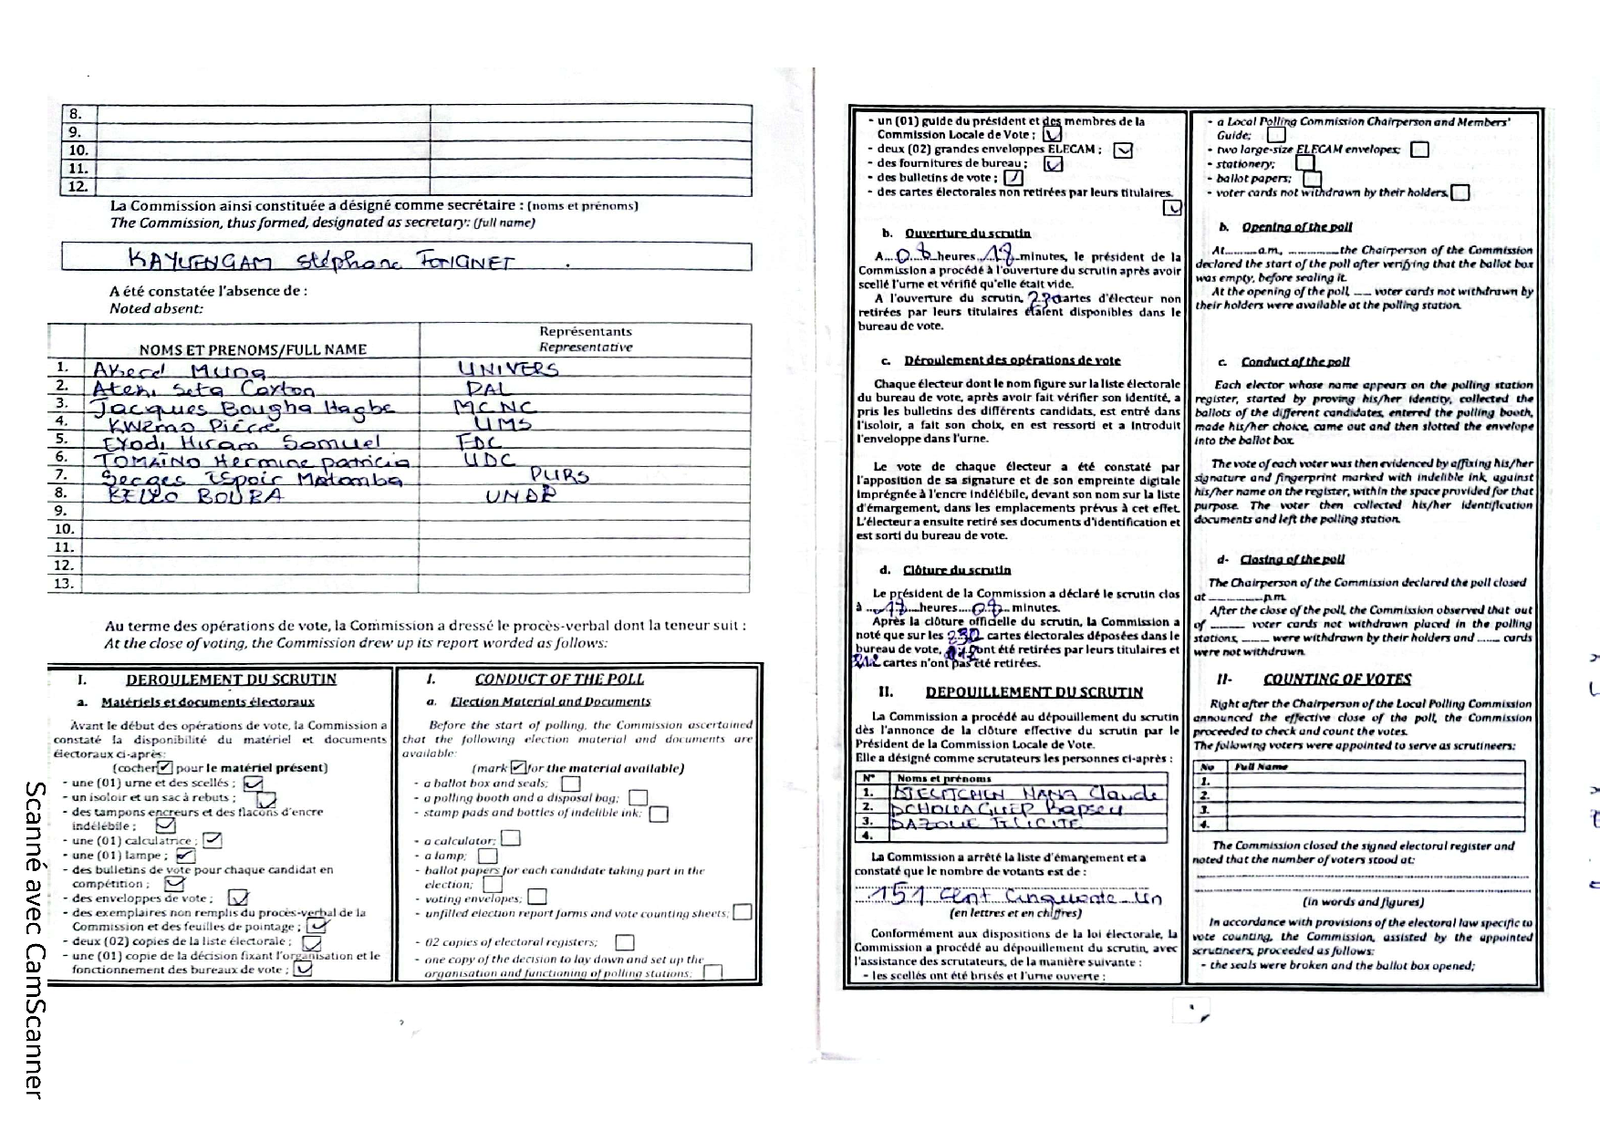 8.
9.
10.
11.
12.
La Commission ainsi constituée a désigné comme secrétaire : (noms et prénoms)
The Commission, thus formed, designated as secretary: (full name)
KAYUENGAM Stéphane
A été constatée l'absence de :
Noted absent:
NOMS ET PRENOMS/FULL NAME
Représentants
Representative
1. Akere Muna UNIVERS
2. Ateki Seta Caxton PAL
3. Jacques Bougha Hagbe MCNC
4. Kwemo Pierre UMS
5. Eyodi Hiram Samuel FDC
6. TOMAÏNO Hermine patricia UDC
7. Serges Espoir Matomba PURS
8. BELLO BOUBA UNDP
9.
10.
11.
12.
13.
Au terme des opérations de vote, la Commission a dressé le procès-verbal dont la teneur suit :
At the close of voting, the Commission drew up its report worded as follows:
I. DEROULEMENT DU SCRUTIN
a. Matériels et documents électoraux
Avant le début des opérations de vote, la Commission a
constaté la disponibilité du matériel et documents
électoraux ci-après:
(cocher ✓ pour le matériel présent)
- une (01) urne et des scellés ;
- un isoloir et un sac à rebuts ;
- des tampons encreurs et des flacons d'encre
indélébile ;
- une (01) calculatrice ;
- une (01) lampe ;
- des bulletins de vote pour chaque candidat en
compétition ;
- des enveloppes de vote ;
- des exemplaires non remplis du procès-verbal de la
Commission et des feuilles de pointage ;
- deux (02) copies de la liste électorale ;
- une (01) copie de la décision fixant l'organisation et le
fonctionnement des bureaux de vote ;
I. CONDUCT OF THE POLL
a. Election Material and Documents
Before the start of polling, the Commission ascertained
that the following election material and documents are
available:
(mark ✓ for the material available)
- a ballot box and seals;
- a polling booth and a disposal bag;
- stamp pads and bottles of indelible ink;
- a calculator;
- a lamp;
- ballot papers for each candidate taking part in the
election;
- voting envelopes;
- unfilled election report forms and vote counting sheets;
- 02 copies of electoral registers;
- one copy of the decision to lay down and set up the
organisation and functioning of polling stations;
- un (01) guide du président et des membres de la
Commission Locale de Vote ;
- deux (02) grandes enveloppes ELECAM ;
- des fournitures de bureau ;
- des bulletins de vote ;
- des cartes électorales non retirées par leurs titulaires.
b. Ouverture du scrutin
A 08 heures 17 minutes, le président de la
Commission a procédé à l'ouverture du scrutin après avoir
scellé l'urne et vérifié qu'elle était vide.
A l'ouverture du scrutin, 230 cartes d'électeur non
retirées par leurs titulaires étaient disponibles dans le
bureau de vote.
c. Déroulement des opérations de vote
Chaque électeur dont le nom figure sur la liste électorale
du bureau de vote, après avoir fait vérifier son identité, a
pris les bulletins des différents candidats, est entré dans
l'isoloir, a fait son choix, en est ressorti et a introduit
l'enveloppe dans l'urne.
Le vote de chaque électeur a été constaté par
l'apposition de sa signature et de son empreinte digitale
imprégnée à l'encre indélébile, devant son nom sur la liste
d'émargement, dans les emplacements prévus à cet effet.
L'électeur a ensuite retiré ses documents d'identification et
est sorti du bureau de vote.
d. Clôture du scrutin
Le président de la Commission a déclaré le scrutin clos
à heures minutes.
Après la clôture officielle du scrutin, la Commission a
noté que sur les 230 cartes électorales déposées dans le
bureau de vote, ont été retirées par leurs titulaires et
212 cartes n'ont pas été retirées.
II. DEPOUILLEMENT DU SCRUTIN
La Commission a procédé au dépouillement du scrutin
dès l'annonce de la clôture effective du scrutin par le
Président de la Commission Locale de Vote.
Elle a désigné comme scrutateurs les personnes ci-après :
N° Noms et prénoms
1. NANA Claude
2.
3. DAZOUE FELICITE
4.
La Commission a arrêté la liste d'émargement et a
constaté que le nombre de votants est de :
151 Cent Cinquante Un
(en lettres et en chiffres)
Conformément aux dispositions de la loi électorale, la
Commission a procédé au dépouillement du scrutin, avec
l'assistance des scrutateurs, de la manière suivante :
- les scellés ont été brisés et l'urne ouverte ;
- a Local Polling Commission Chairperson and Members'
Guide;
- two large-size ELECAM envelopes;
- stationery;
- ballot papers;
- voter cards not withdrawn by their holders.
b. Opening of the poll
At..........a.m, ..............the Chairperson of the Commission
declared the start of the poll after verifying that the ballot box
was empty, before sealing it.
At the opening of the poll, ..... voter cards not withdrawn by
their holders were available at the polling station.
c. Conduct of the poll
Each elector whose name appears on the polling station
register, started by proving his/her identity, collected the
ballots of the different candidates, entered the polling booth,
made his/her choice, came out and then slotted the envelope
into the ballot box.
The vote of each voter was then evidenced by affixing his/her
signature and fingerprint marked with indelible ink, against
his/her name on the register, within the space provided for that
purpose. The voter then collected his/her identification
documents and left the polling station.
d- Closing of the poll
The Chairperson of the Commission declared the poll closed
at ..............p.m.
After the close of the poll, the Commission observed that out
of ......... voter cards not withdrawn placed in the polling
stations, ....... were withdrawn by their holders and ...... cards
were not withdrawn.
II- COUNTING OF VOTES
Right after the Chairperson of the Local Polling Commission
announced the effective close of the poll, the Commission
proceeded to check and count the votes.
The following voters were appointed to serve as scrutineers:
No Full Name
1.
2.
3.
4.
The Commission closed the signed electoral register and
noted that the number of voters stood at:
(in words and figures)
In accordance with provisions of the electoral law specific to
vote counting, the Commission, assisted by the appointed
scrutineers, proceeded as follows:
- the seals were broken and the ballot box opened;
Scanné avec CamScanner